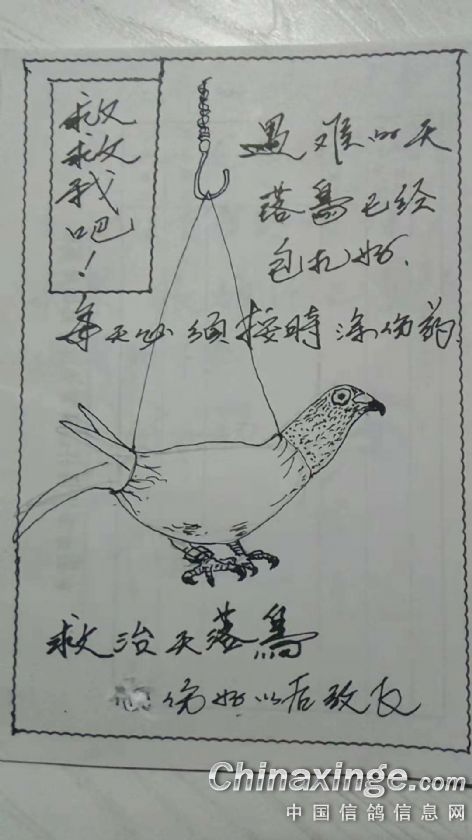 救救我吧！
遇难的天
落鸟已经
包扎好.
每天必须按時涂伤药
救治天落鳥
伤好以后放飞
Chinaxinge.com
中国信鸽信息网